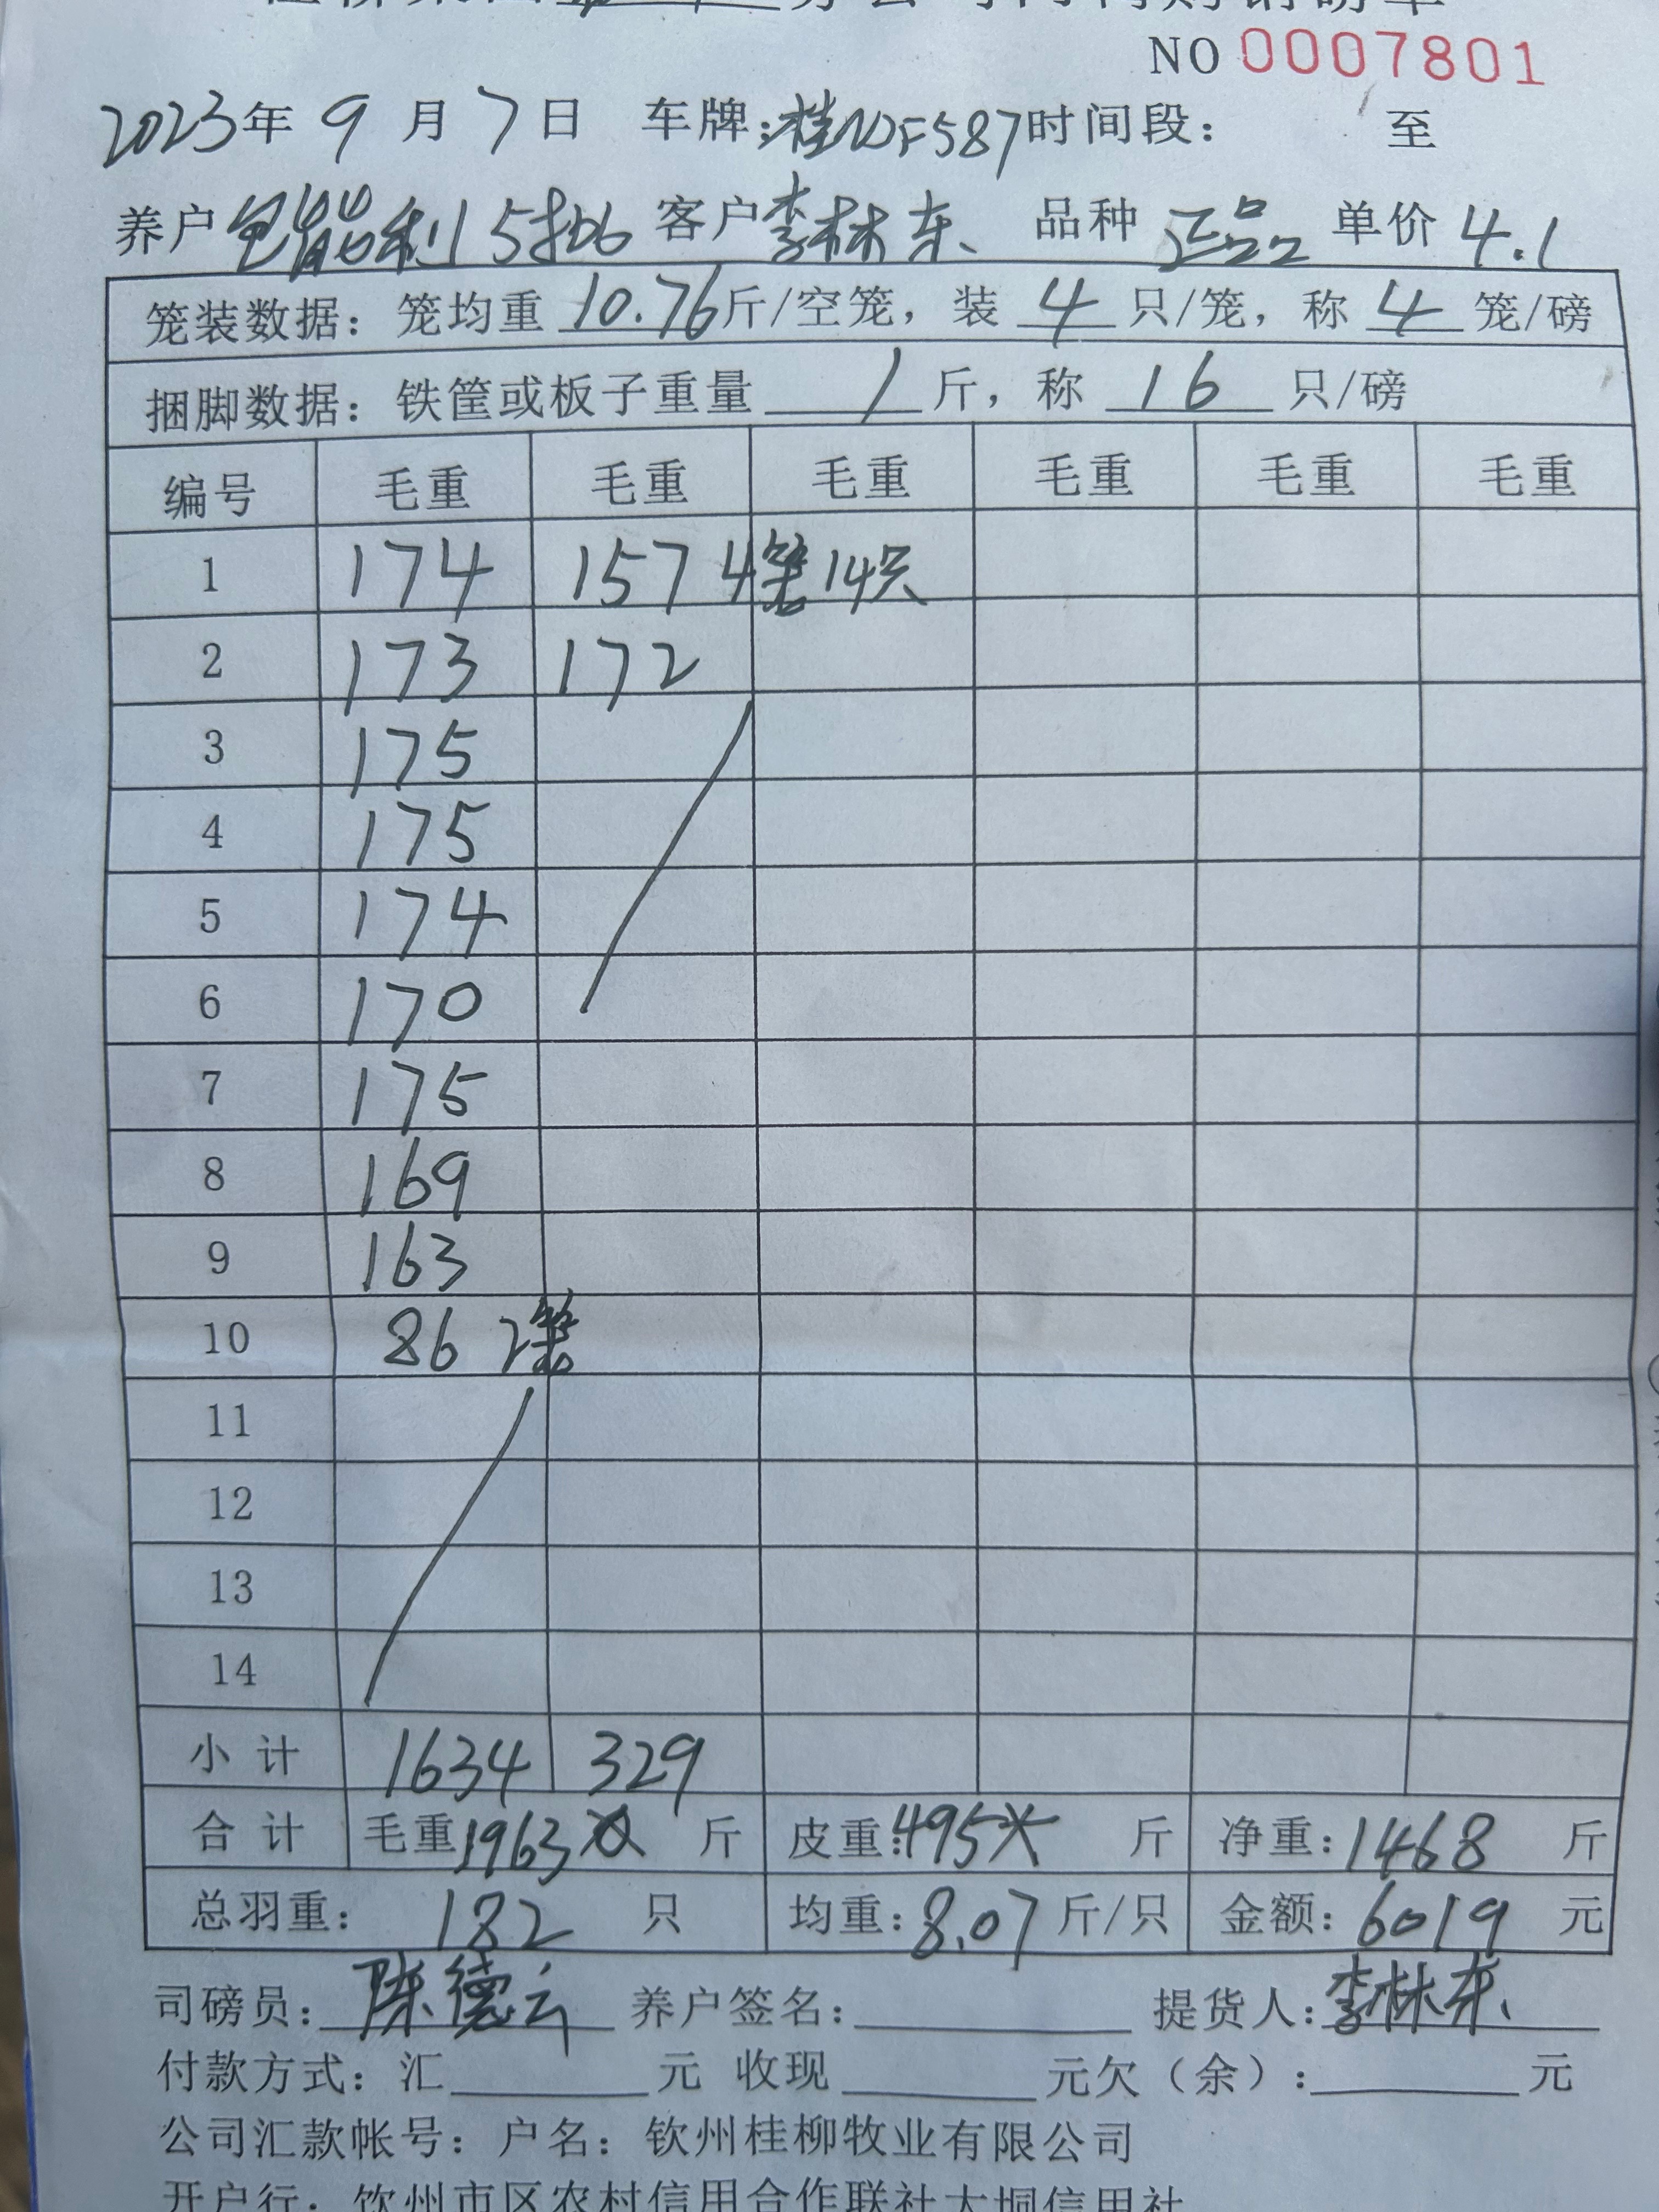 NO 0007801
2023年 9 月 7日 车牌:桂NDF587时间段： 至
养户 包能利15批6 客户 李林东 品种 正品 单价 4.1
笼装数据：笼均重 10.76斤/空笼，装 4 只/笼，称 4 笼/磅
捆脚数据：铁筐或板子重量 / 斤，称 16 只/磅
编号 毛重 毛重 毛重 毛重 毛重 毛重
1 174 157 4笼14只
2 173 172
3 175
4 175
5 174
6 170
7 175
8 169
9 163
10 86 2笼
11
12
13
14
小 计 1634 329
合 计 毛重1963 斤 皮重:495 斤 净重:1468 斤
总羽重： 182 只 均重:8.07 斤/只 金额: 6019 元
司磅员: 陈德云 养户签名: 提货人:李林东
付款方式：汇 元 收现 元欠（余）: 元
公司汇款帐号：户名：钦州桂柳牧业有限公司
开户行：钦州市区农村信用合作联社大垌信用社